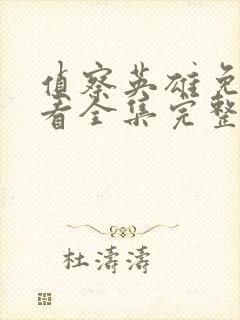 侦察英雄免
看全集完整
杜濤濤